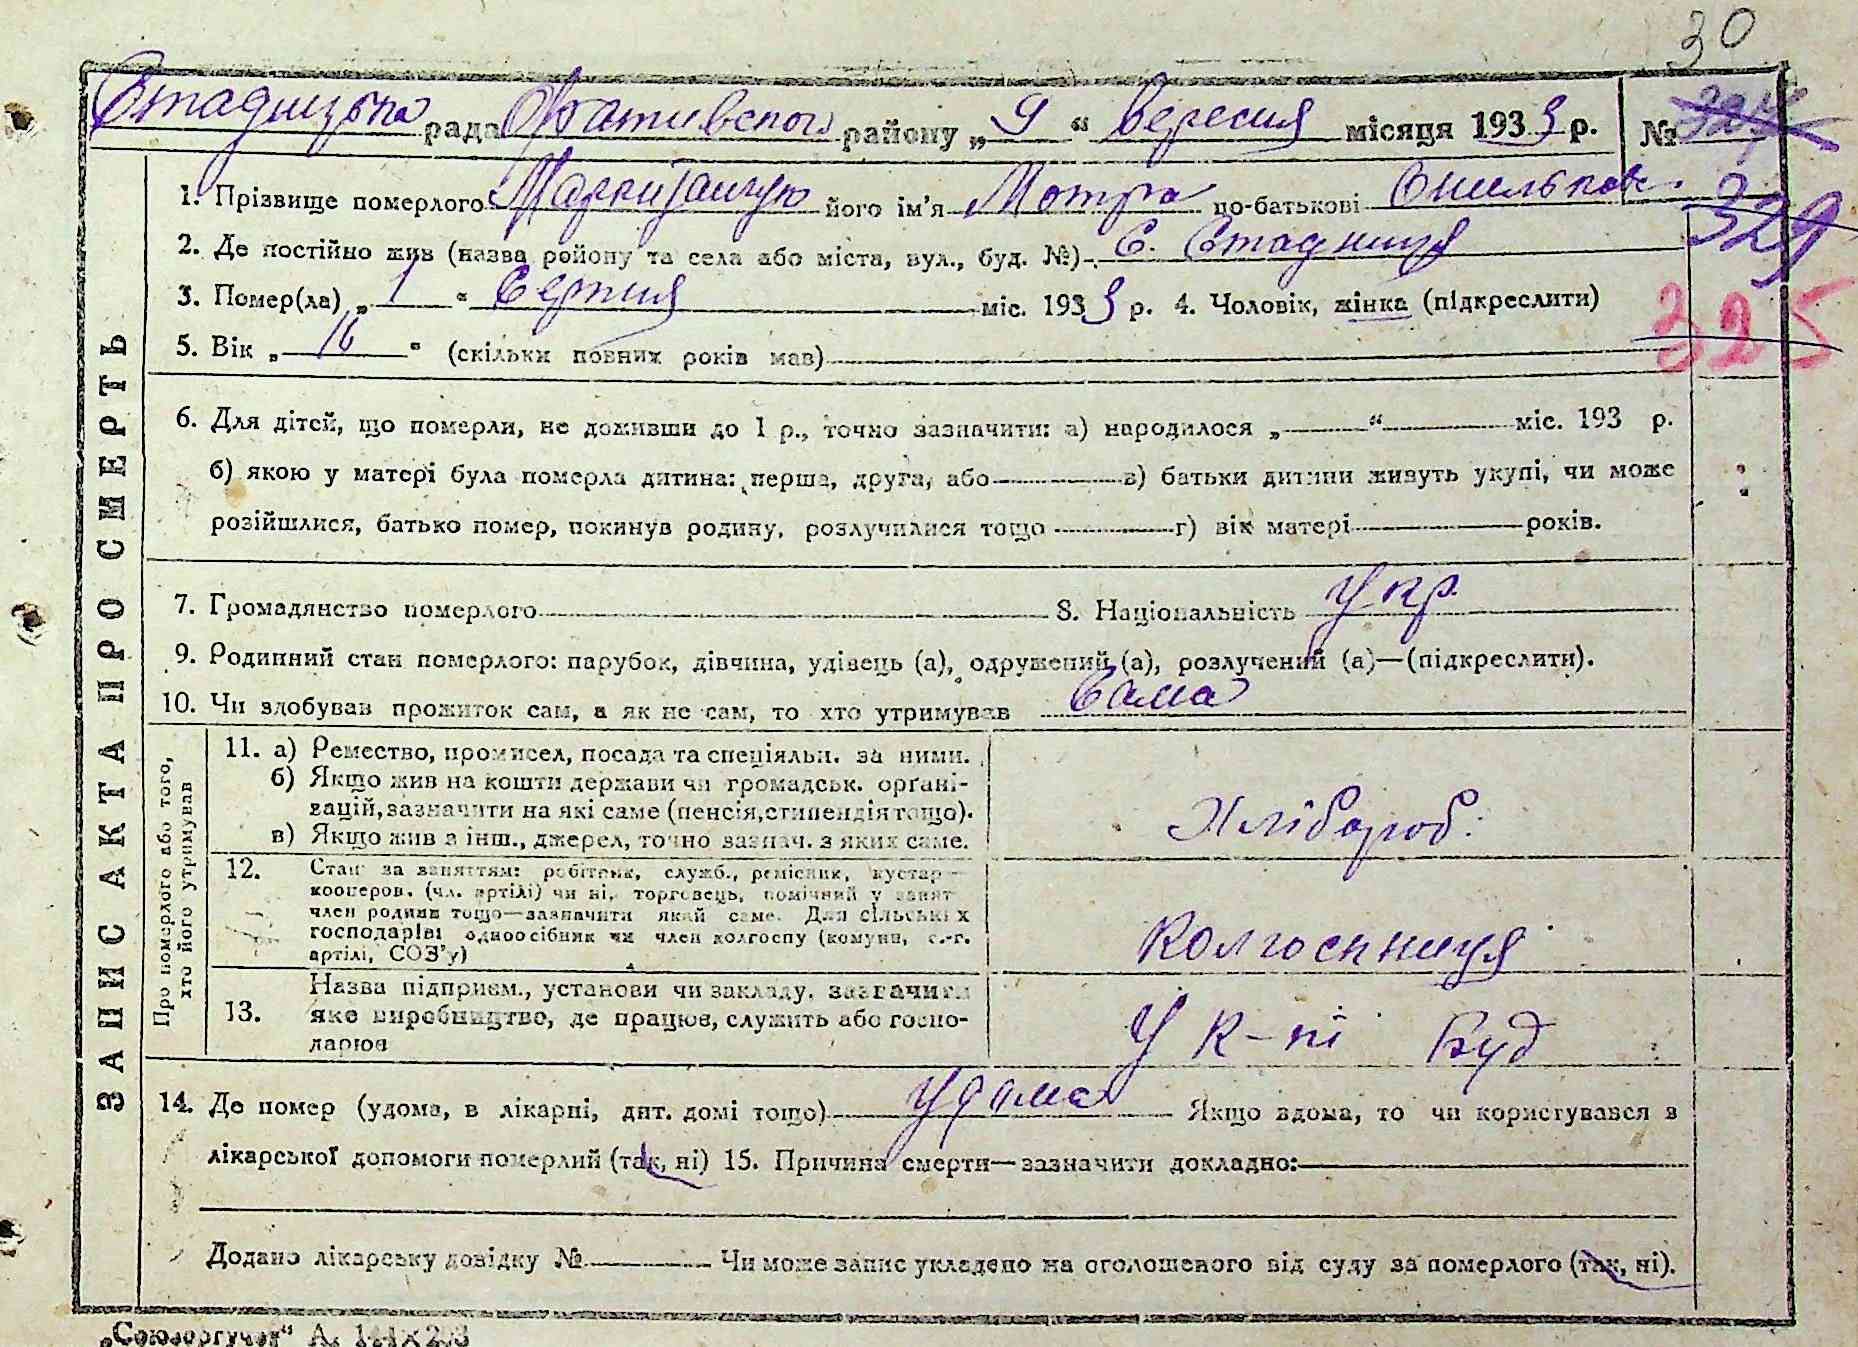 30
Стадницька рада Оратівського району „ 9 “ Вересня місяця 1933 р. № 324
329
325
1. Прізвище померлого його ім'я Мотра по-батькові
2. Де постійно жив (назва району та села або міста, вул., буд. №) С. Стадниця
3. Помер(ла) „ 1 “ Серпня міс. 1933 р. 4. Чоловік, жінка (підкреслити)
5. Вік „ 16 “ (скільки повних років мав)
6. Для дітей, що померли, не доживши до 1 р., точно зазначити: а) народилося „ “ міс. 193 р.
б) якою у матері була померла дитина: перша, друга, або в) батьки дитини живуть укупі, чи може
розійшлися, батько помер, покинув родину, розлучилися тощо г) вік матері років.
7. Громадянство померлого 8. Національність Укр.
9. Родинний стан померлого: парубок, дівчина, удівець (а), одружений (а), розлучений (а)—(підкреслити).
10. Чи здобував прожиток сам, а як не сам, то хто утримував Сама
ЗАПИС АКТА ПРО СМЕРТЬ
Про померлого або того,
хто його утримував
11. а) Ремество, промисел, посада та спеціяльн. за ними.
б) Якщо жив на кошти держави чи громадськ. орґані-
зацій, зазначити на які саме (пенсія, стипендія тощо).
в) Якщо жив з інш., джерел, точно зазнач. з яких саме.
Хлібороб.
12. Стан за заняттям: робітник, служб., ремісник, кустар—
кооперов. (чл. артілі) чи ні, торговець, помічний у занят
член родини тощо—зазначити який саме. Для сільських
господарів: одноосібник чи член колгоспу (комуни, с.-г.
артілі, СОЗ'у)
Колгоспниця
13. Назва підприєм., установи чи закладу, зазначити
яке виробництво, де працює, служить або госпо-
дарює
У к-пі Буд
14. Де помер (удома, в лікарні, дит. домі тощо) Удома Якщо вдома, то чи користувався в
лікарської допомоги померлий (так, ні) 15. Причина смерти—зазначити докладно:
Додано лікарську довідку № Чи може запис укладено на оголошеного від суду за померлого (так, ні).
„Союзоргучет“ А.